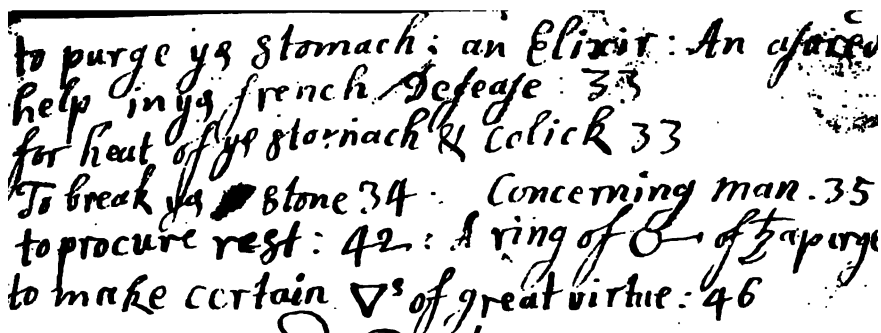 to purge ye stomach: an Elixir: An assured
help in ye french Desease: 33
for heat of ye stomach & collick 33
To break ye stone 34. Concerning man. 35
to procure rest: 42: A ring of ☉ of ♄ a purge
to make certain ▽s of great virtue: 46